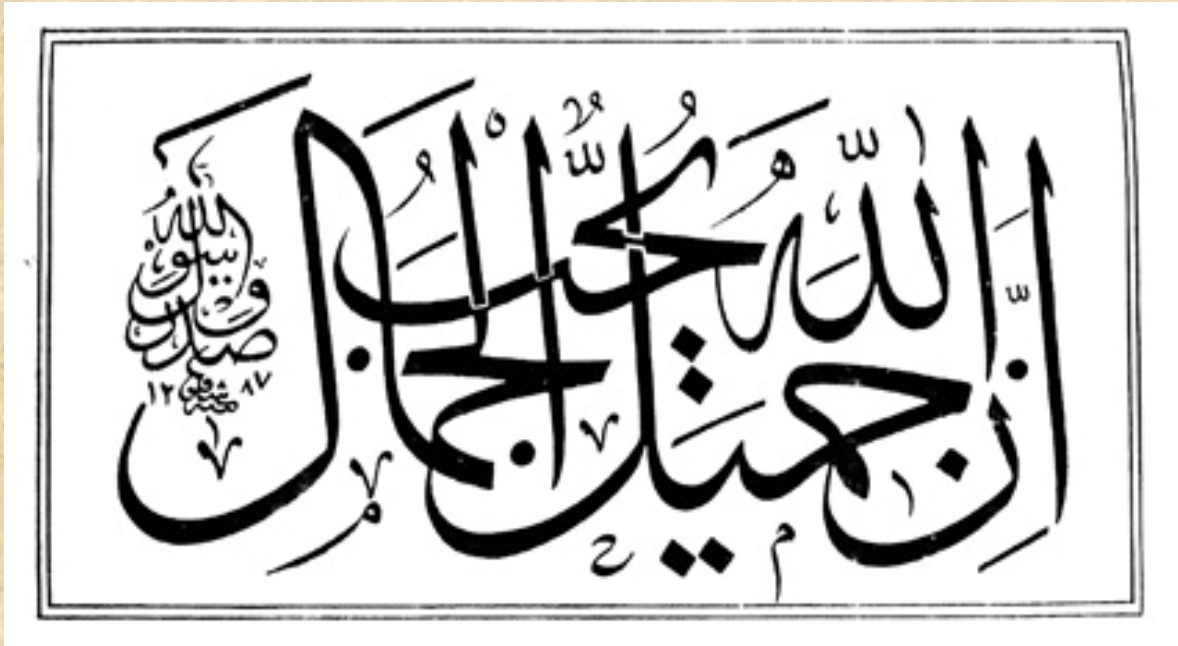 اِنَّ اللّٰهَ جَمِيلٌ يُحِبُّ الْجَمَالَ
صدق رسول الله
١٢٨٧